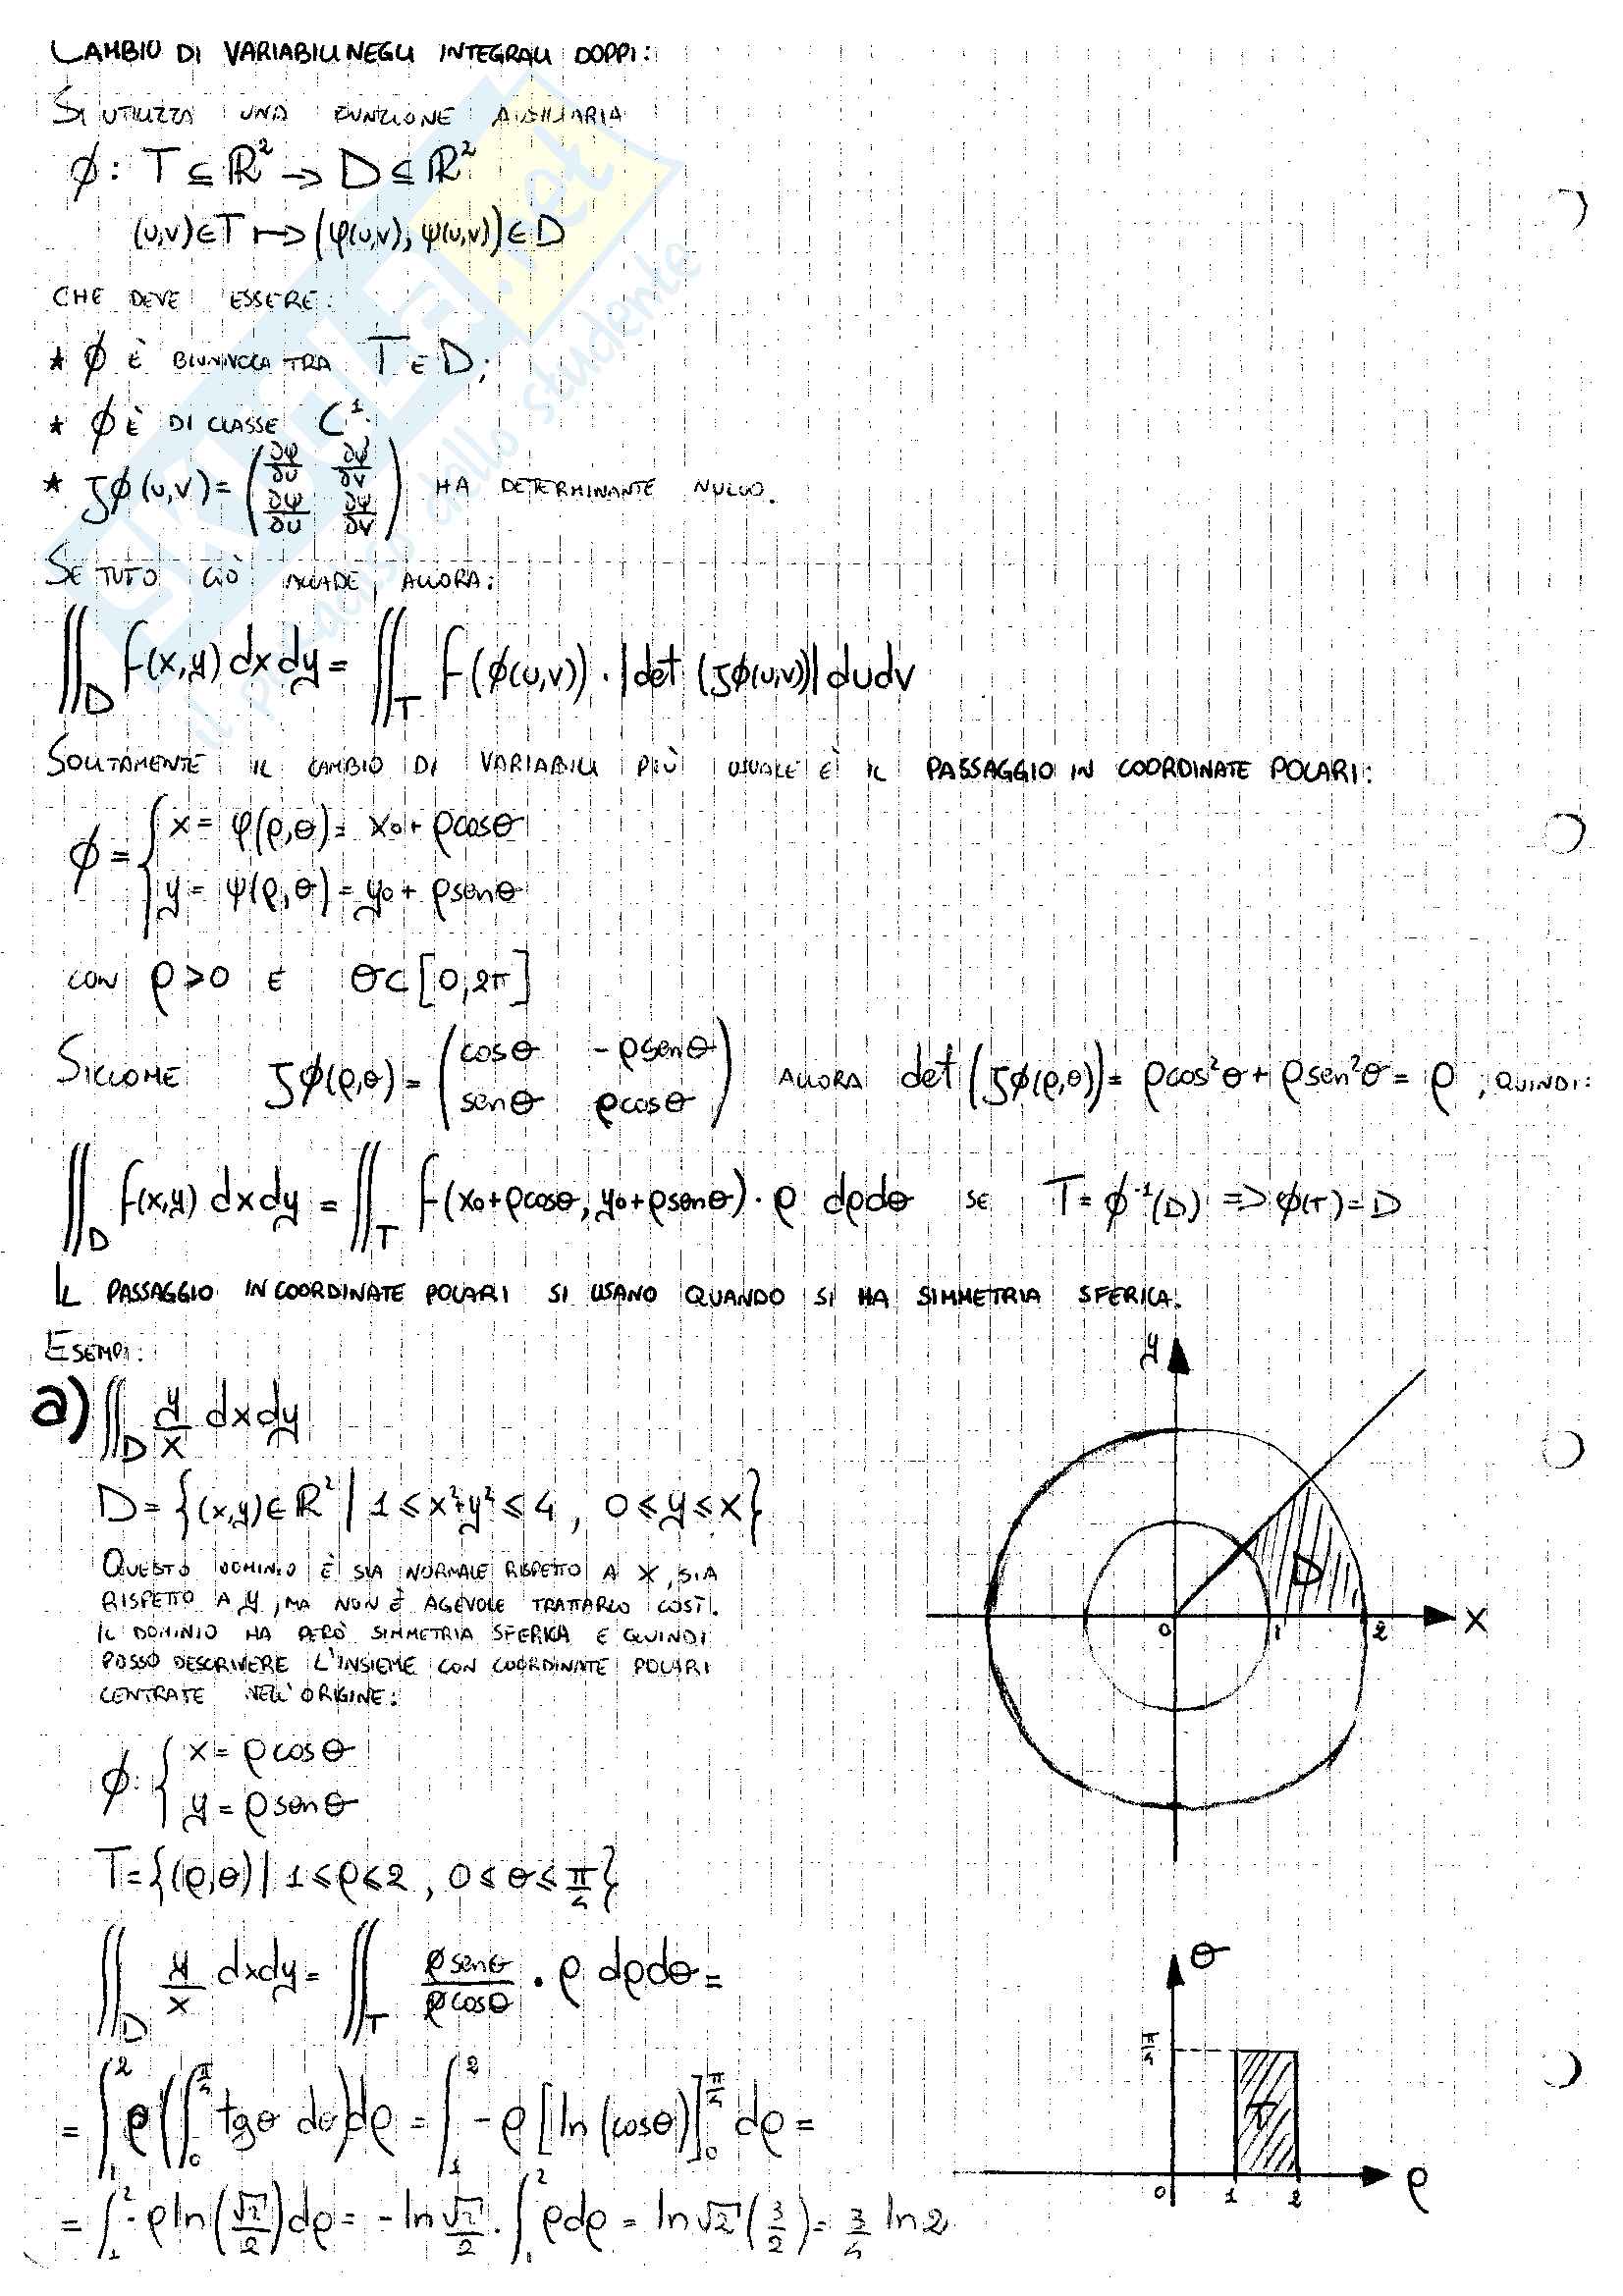 CAMBIO DI VARIABILI NEGLI INTEGRALI DOPPI:
SI UTILIZZA UNA FUNZIONE AUSILIARIA
ϕ: T ⊆ ℝ² → D ⊆ ℝ²
(u,v)∈T ↦ (φ(u,v), ψ(u,v))∈D
CHE DEVE ESSERE:
★ ϕ È BIUNIVOCA TRA T E D;
★ ϕ È DI CLASSE C¹.
★ Jϕ(u,v) = (∂φ/∂u ∂φ/∂v ; ∂ψ/∂u ∂ψ/∂v) HA DETERMINANTE NULLO.
SE TUTO CIÒ ACCADE, ALLORA:
∬_D f(x,y) dxdy = ∬_T f(ϕ(u,v)) · |det (Jϕ(u,v))| dudv
SOLITAMENTE IL CAMBIO DI VARIABILI PIÙ USUALE È IL PASSAGGIO IN COORDINATE POLARI:
ϕ = { x = φ(ρ,θ) = x₀ + ρcosθ
y = ψ(ρ,θ) = y₀ + ρsenθ
CON ρ>0 E θ⊂[0,2π]
SICCOME Jϕ(ρ,θ) = (cosθ -ρsenθ ; senθ ρcosθ) ALLORA det(Jϕ(ρ,θ)) = ρcos²θ + ρsen²θ = ρ, QUINDI:
∬_D f(x,y) dxdy = ∬_T f(x₀+ρcosθ, y₀+ρsenθ) · ρ dρdθ SE T = ϕ⁻¹(D) => ϕ(T) = D
IL PASSAGGIO IN COORDINATE POLARI SI USANO QUANDO SI HA SIMMETRIA SFERICA.
ESEMPI:
a) ∬_D y/x dxdy
D = {(x,y)∈ℝ² | 1 ≤ x²+y² ≤ 4, 0 ≤ y ≤ x}
QUESTO DOMINIO È SIA NORMALE RISPETTO A X, SIA
RISPETTO A Y, MA NON È AGEVOLE TRATTARLO COSÌ.
IL DOMINIO HA PERÒ SIMMETRIA SFERICA E QUINDI
POSSO DESCRIVERE L'INSIEME CON COORDINATE POLARI
CENTRATE NELL'ORIGINE:
ϕ: { x = ρcosθ
y = ρsenθ
T = {(ρ,θ) | 1 ≤ ρ ≤ 2, 0 ≤ θ ≤ π/4}
∬_D y/x dxdy = ∬_T ρsenθ/ρcosθ · ρ dρdθ =
= ∫₁² ρ(∫₀^{π/4} tgθ dθ)dρ = ∫₁² -ρ[ln(cosθ)]₀^{π/4} dρ =
= ∫₁² -ρln(√2/2)dρ = -ln √2/2 · ∫₁² ρdρ = ln√2 (3/2) = 3/4 ln2
y
D
0 1 2 x
θ
π/4
T
0 1 2 ρ
.net
dallo studente